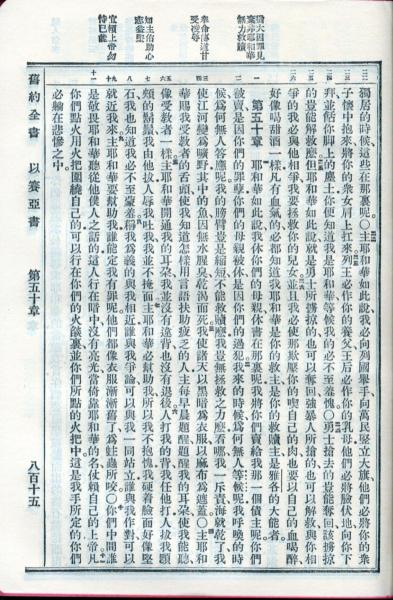 猶大因罪見
棄非耶和華
無力救贖
奉命傳道甘
受凌辱
知主佑助心
志益堅
宜賴上帝勿
獨居的時候這些在那裏呢○主耶和華如此說我必向列國舉手向萬民竪立大旗他們必將你的衆
子懷中抱來將你的衆女肩上扛來列王必作你的養父王后必作你的乳母他們必將臉伏地向你下
拜並餂你脚上的塵土你便知道我是耶和華等候我的必不至羞愧○勇士搶去的豈能奪回該擄掠
的豈能解救應但耶和華如此說就是勇士所擄掠的也可以奪回強暴人所搶的也可以解救與你相
爭的我必與他相爭我要拯救你的兒女並且我必使那欺壓你的喫自己的肉也要以自己的血喝醉
好像喝甜酒一樣凡有血氣的必都知道我耶和華是你的救主是你的救贖主是雅各的大能者
第五十章 耶和華如此說我休你們的母親休書在那裏呢我將你們賣給我那一個債主呢你們
被賣是因你們的罪孽你們的母親被休是因你們的過犯我來的時候爲何無人等候呢我呼喚的時
候爲何無人答應呢我的膀臂豈是縮短不能救贖麼我豈無拯救之力麼看哪我一斥責海就乾了我
使江河變爲曠野其中的魚因無水腥臭乾渴而死我使諸天以黑暗爲衣服以麻布爲遮蓋○主耶和
華賜我受教者的舌頭使我知道怎樣用言語扶助疲乏的人主每早晨題醒題醒我的耳朵使我能聽
像受教者一樣主耶和華開通我的耳朵我並沒有違背也沒有退後人打我的背我任他打人拔我頤
頰的鬍鬚我由他拔人辱我吐我我並不掩面主耶和華必幫助我所以我不抱愧我硬着臉面好像堅
石我也知道我必不至蒙羞稱我爲義的與我相近誰與我爭論可以與我一同站立誰與我作對可以
就近我來主耶和華要幫助我誰能定我有罪呢他們都像衣服漸漸舊了爲蛀蟲所咬○你們中間誰
是敬畏耶和華聽從他僕人之話的這人行在暗中沒有亮光當倚靠耶和華的名仗賴自己的上帝凡
你們點火用火把圍繞自己的可以行在你們的火燄裏並你們所點的火把中這是我手所定的你們
必躺在悲慘之中
舊約全書 以賽亞書 第五十章 八百十五